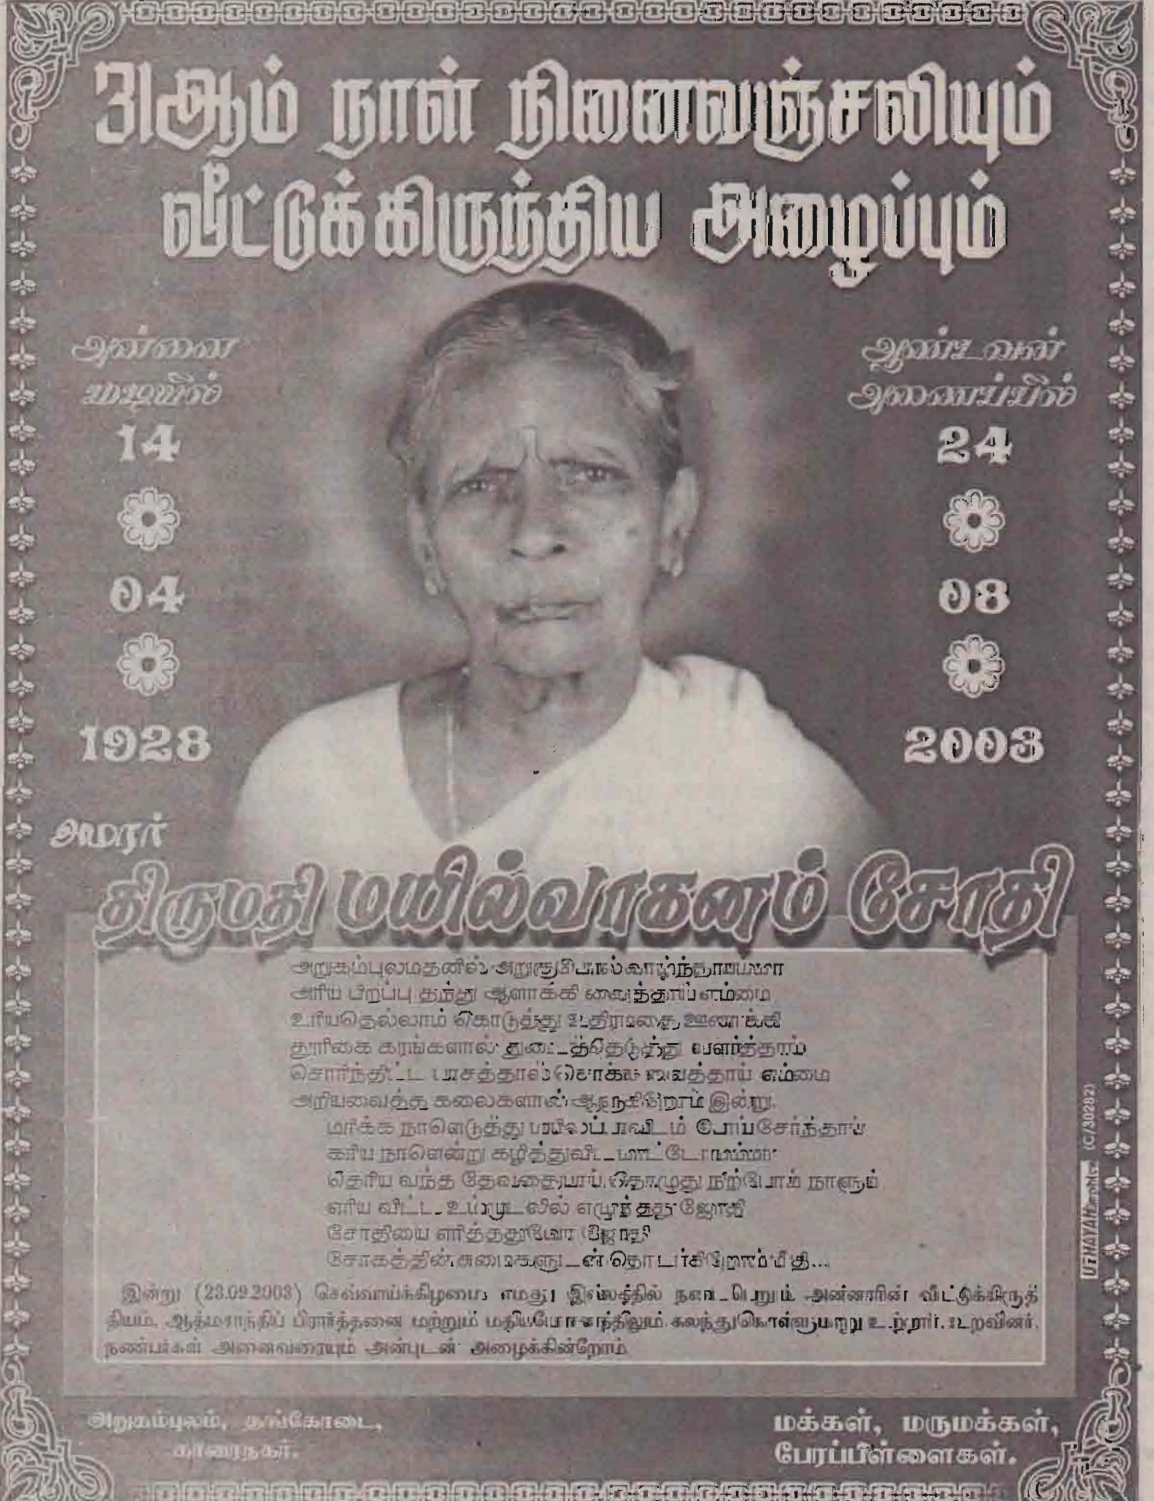 31ஆம் நாள் நினைவஞ்சலியும்
வீட்டுக்கிருந்திய அழைப்பும்
அன்னை
மடியில்
14
04
1928
ஆண்டவன்
அணைப்பில்
24
08
2003
அமரர்
திருமதி மயில்வாகனம் சோதி
அறுகம்புலமதனில் அறுகுபோல் வாழ்ந்தாயம்மா
அரிய பிறப்பு தந்து ஆளாக்கி வைத்தாய் எம்மை
உரியதெல்லாம் கொடுத்து உதிரமதை ஊணாக்கி
தூரிகை கரங்களால் துடைத்தெடுத்து வளர்த்தாய்
சொரிந்திட்ட பாசத்தால் சொக்க வைத்தாய் எம்மை
அறியவைத்த கலைகளால் ஆகுகிறோம் இன்று.
மரிக்க நாளெடுத்து போய்சேர்ந்தாய்
கரிய நாளென்று கழித்துவிடமாட்டோமம்மா
தெரிய வந்த தேவதையாய் தொழுது நிற்போம் நாளும்
எரிய விட்ட உம்முடலில் எழுந்தது ஜோதி
சோதியை எரித்ததுவோ ஜோதி
சோகத்தின் சுமைகளுடன் தொடர்கிறோம் மீதி...
இன்று (23.09.2003) செவ்வாய்க்கிழமை எமது இல்லத்தில் நடைபெறும் அன்னாரின் வீட்டுக்கிருத்
தியம், ஆத்மசாந்திப் பிரார்த்தனை மற்றும் மதியபோசனத்திலும் கலந்துகொள்ளுமாறு உற்றார், உறவினர்,
நண்பர்கள் அனைவரையும் அன்புடன் அழைக்கின்றோம்
அறுகம்புலம், தங்கோடை,
காரைநகர்.
மக்கள், மருமக்கள்,
பேரப்பிள்ளைகள்.
(C/30282)